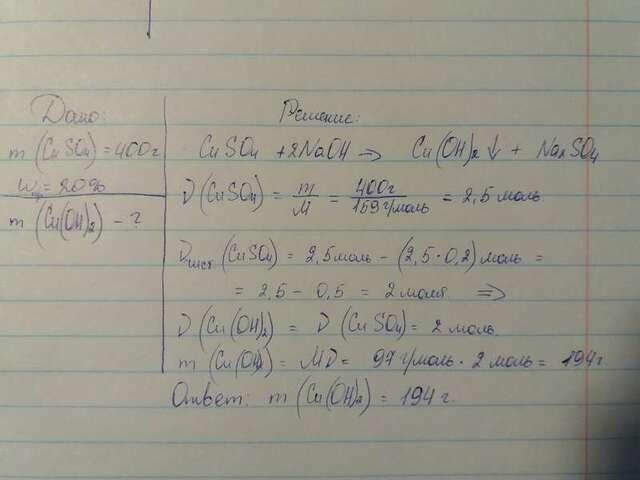 Дано:
m (CuSO4) = 400г
Wпр = 20%
m (Cu(OH)2) - ?
Решение:
CuSO4 + 2NaOH → Cu(OH)2 ↓ + Na2SO4
ν (CuSO4) = m/M = 400г/159 г/моль = 2,5 моль
νчист (CuSO4) = 2,5 моль - (2,5 · 0,2) моль =
= 2,5 - 0,5 = 2 моля. ⇒
ν (Cu(OH)2) = ν (CuSO4) = 2 моль.
m (Cu(OH)2) = Mν = 97 г/моль · 2 моль = 194 г.
Ответ: m (Cu(OH)2) = 194 г.